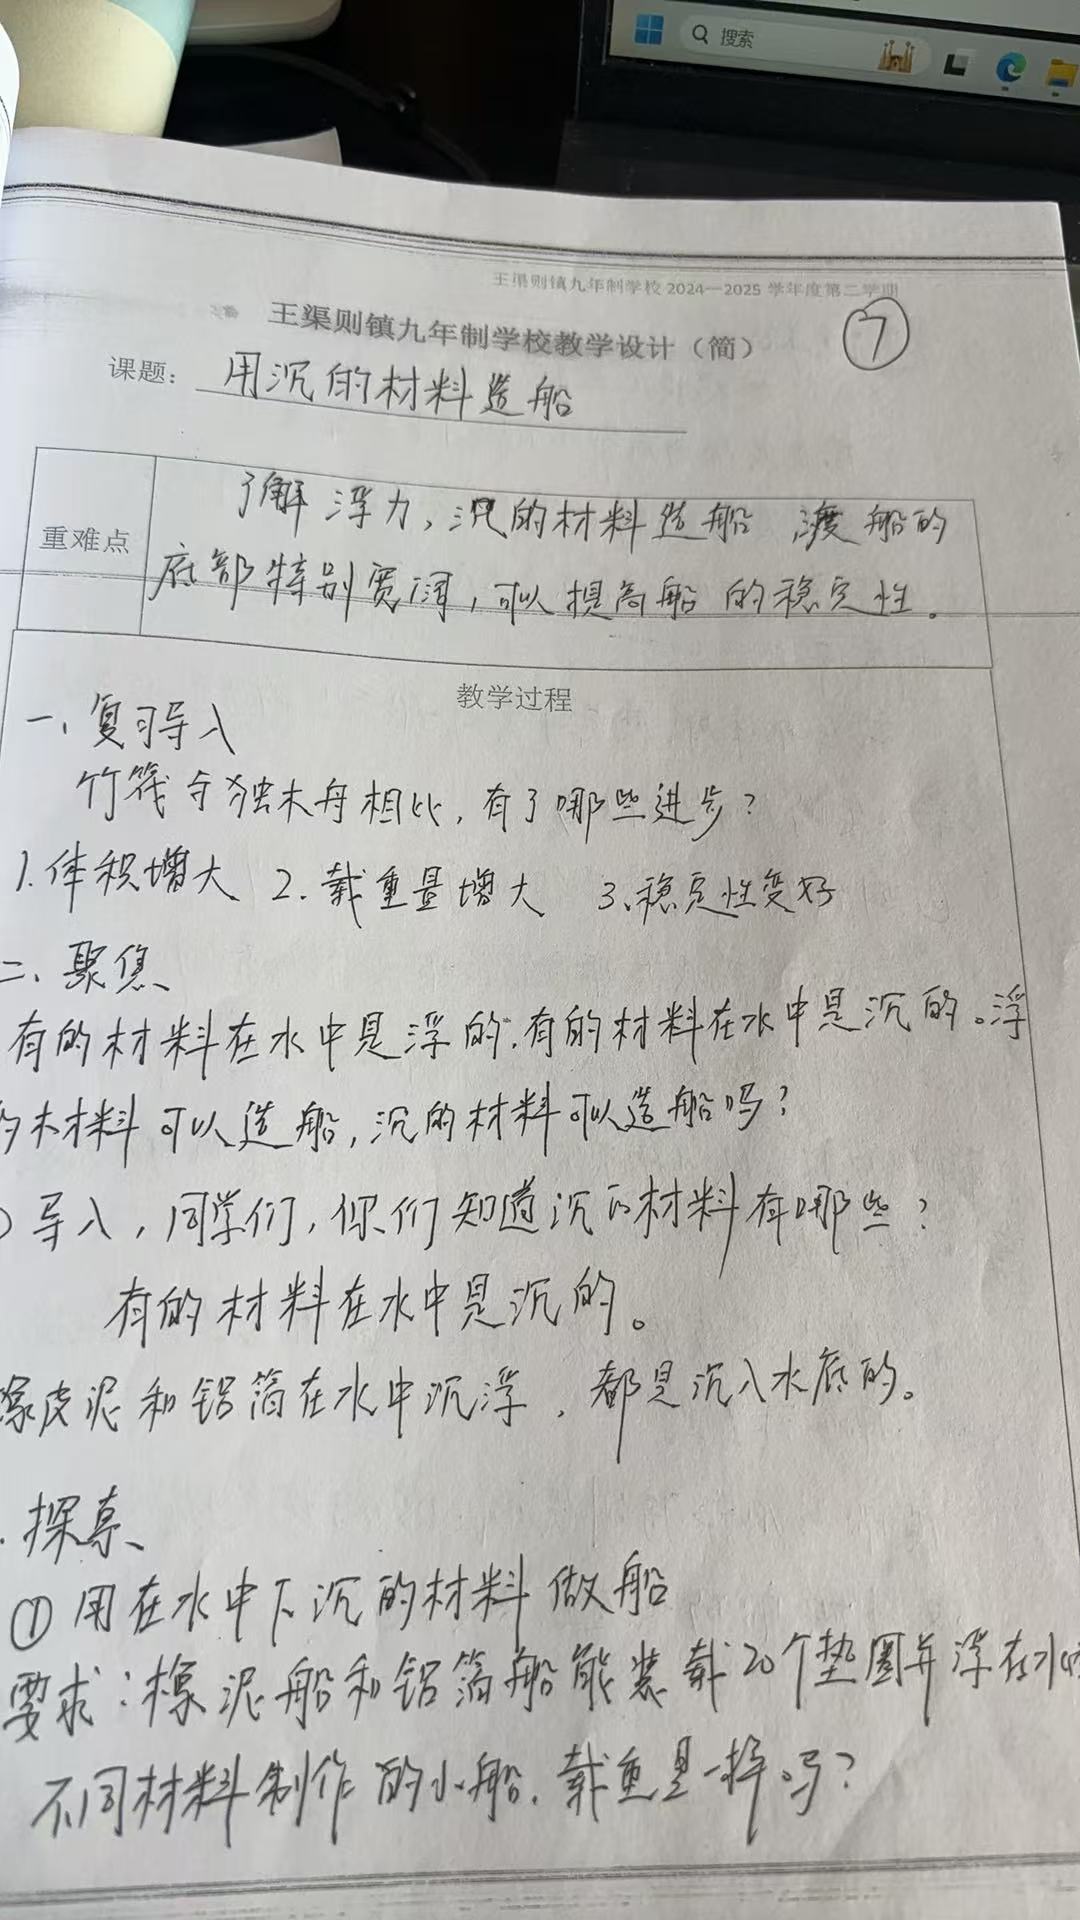 搜索
王渠则镇九年制学校 2024—2025 学年度第二学期
王渠则镇九年制学校教学设计（简）
⑦
课题：用沉的材料造船
重难点
了解浮力，沉的材料造船 渡船的
底部特别宽阔，可以提高船的稳定性。
教学过程
一、复习导入
竹筏与独木舟相比，有了哪些进步？
1.体积增大 2.载重量增大 3、稳定性变好
二、聚焦、
有的材料在水中是浮的，有的材料在水中是沉的。浮
的木材料可以造船，沉的材料可以造船吗？
导入，同学们，你们知道沉的材料有哪些？
有的材料在水中是沉的。
橡皮泥和铝箔在水中沉浮，都是沉入水底的。
探索、
①用在水中下沉的材料做船
要求：橡泥船和铝箔船能装载20个垫圈并浮在水
不同材料制作的小船，载重量一样吗？